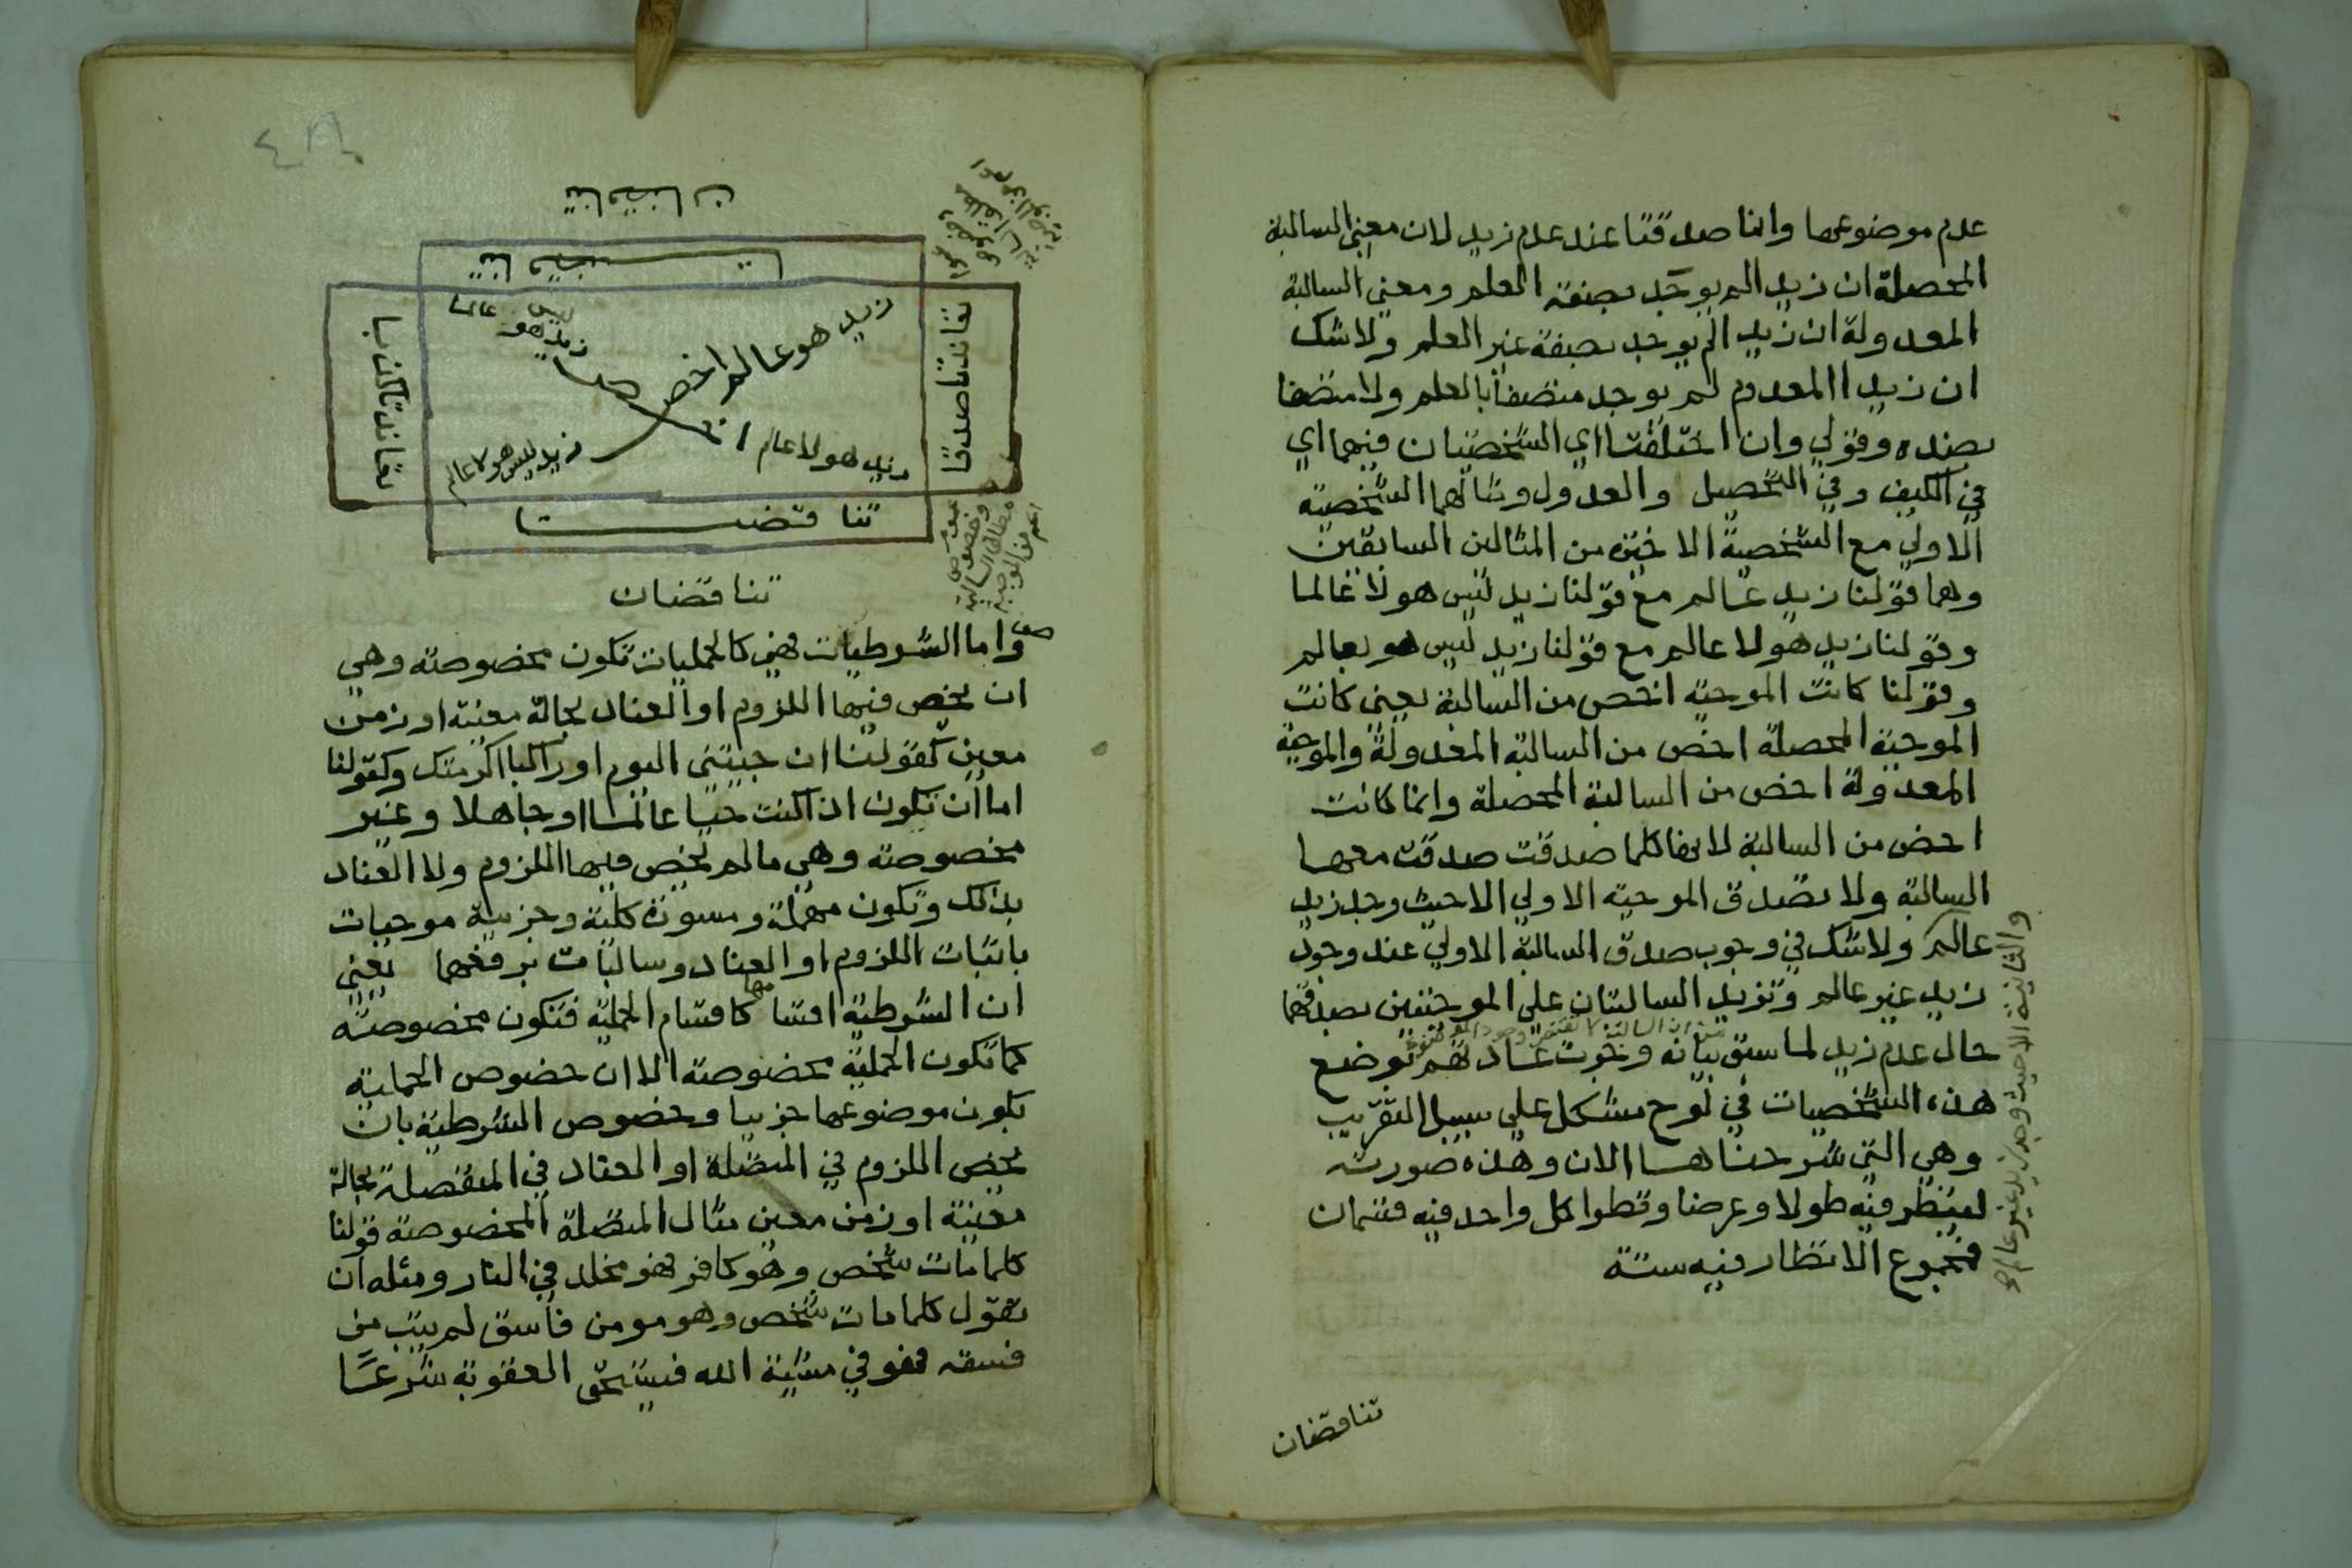 عدم موضوعها وانما صدقتا عند عدم زيد لان معنى السالبة
المحصلة ان زيدا لم يوجد بصفة العلم ومعنى السالبة
المعدولة ان زيدا لم يوجد بصفة غير العلم ولا شك
ان زيدا المعدوم لم يوجد متصفا بالعلم ولا متصفا
بضده وقولي وان اختلفتا اي الشخصيتان فيهما اي
في الكيف وفي التحصيل والعدول ومثالهما الشخصية
الاولي مع الشخصية الاخيرة من المثالين السابقين
وهما قولنا زيد عالم مع قولنا زيد ليس هو لا عالما
وقولنا زيد هو لا عالم مع قولنا زيد ليس هو بعالم
وقولنا كانت الموجبة اخص من السالبة يعني كانت
الموجبة المحصلة اخص من السالبة المعدولة والموجبة
المعدولة اخص من السالبة المحصلة وانما كانت
اخص من السالبة لانها كلما صدقت صدقت معها
السالبة ولا تصدق الموجبة الاولي الا حيث وجد زيد
عالم ولا شك في وجوب صدق السالبة الاولي عند وجود
زيد غير عالم وتزيد السالبتان علي الموجبتين بصدقهما
من ان السالبة لا تقتضي وجود الموضوع
حال عدم زيد لما سبق بيانه وجرت عادتهم بوضع
هذه الشخصيات في لوح مشكل علي سبيل التقريب
وهي التي شرحناها الان وهذه صورته
لينظر فيه طولا وعرضا وقطرا كل واحد فيه قسمان
فمجموع الانظار فيه ستة
والثانية الا حيث وجد زيد غير عالم
تناقضان
تناقضان
تناقضتا
تعاندتا صدقا
تعاندتا كذبا
زيد هو عالم
اخص
زيد ليس هو عالما
زيد هو لا عالم
زيد ليس هو لا عالم
تناقضتا
تناقضان
واما الشرطيات فهي كالحمليات تكون مخصوصة وهي
ان يخص فيها اللزوم او العناد بحالة معينة او زمن
معين كقولنا ان جيتني اليوم او راكبا اكرمتك وكقولنا
اما ان تكون اذا كنت حيا عالما او جاهلا وغير
مخصوصة وهي ما لم يخص فيها اللزوم ولا العناد
بذلك وتكون مهملة ومسورة كلية وجزيية موجبات
باثبات اللزوم او العناد وسالبات برفعهما يعني
ان الشرطية اقسامها كاقسام الحملية فتكون مخصوصة
كما تكون الحملية مخصوصة الا ان خصوص الحملية
بكون موضوعها جزييا وخصوص الشرطية بان
يخص اللزوم في المتصلة او العناد في المنفصلة بحالة
معينة او زمن معين مثال المتصلة المخصوصة قولنا
كلما مات شخص وهو كافر فهو مخلد في النار ومثله ان
تقول كلما مات شخص وهو مومن فاسق لم يتب من
فسقه فهو في مشية الله فيستحق العقوبة شرعا